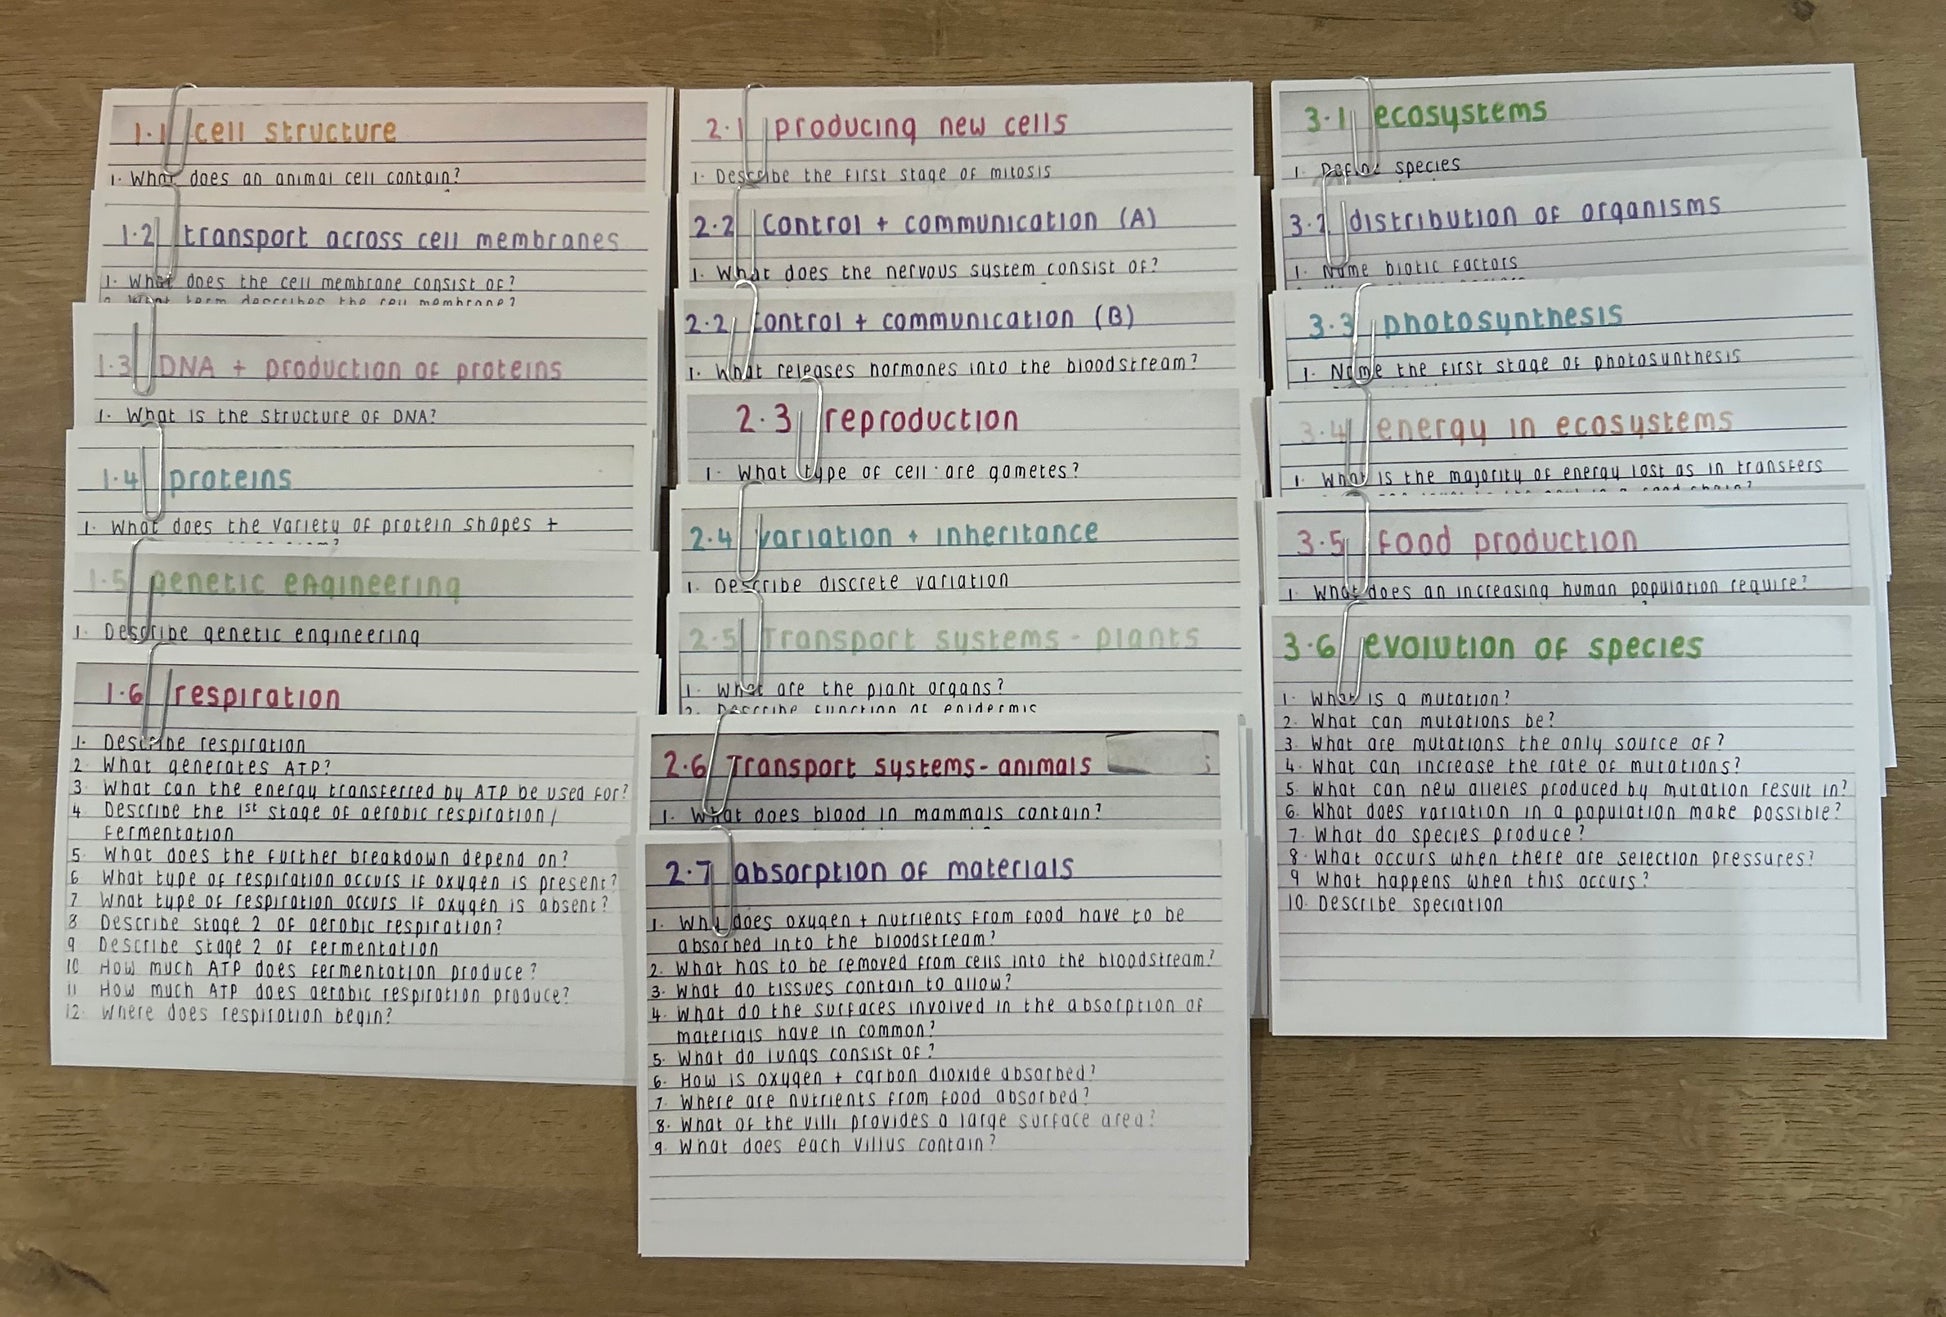 1.1 cell structure
1. What does an animal cell contain?
1.2 transport across cell membranes
1. What does the cell membrane consist of?
2. What term describes the cell membrane?
1.3 DNA + production of proteins
1. What is the structure of DNA?
1.4 proteins
1. What does the variety of protein shapes +
1.5 genetic engineering
1. Describe genetic engineering
1.6 respiration
1. Describe respiration
2 What generates ATP?
3. What can the energy transferred by ATP be used for?
4. Describe the 1st stage of aerobic respiration/
fermentation
5. What does the further breakdown depend on?
6 What type of respiration occurs if oxygen is present?
7 What type of respiration occurs if oxygen is absent?
8 Describe stage 2 of aerobic respiration?
9 Describe stage 2 of fermentation
10 How much ATP does fermentation produce?
11 How much ATP does aerobic respiration produce?
12. Where does respiration begin?
2.1 producing new cells
1. Describe the first stage of mitosis
2.2 control + communication (A)
1. What does the nervous system consist of?
2.2 control + communication (B)
1. What releases hormones into the bloodstream?
2.3 reproduction
1. What type of cell are gametes?
2.4 variation + inheritance
1. Describe discrete variation
2.5 Transport systems - plants
1. What are the plant organs?
2. Describe function of epidermis
2.6 Transport systems - animals
1. What does blood in mammals contain?
2.7 absorption of materials
1. Why does oxygen + nutrients from food have to be
absorbed into the bloodstream?
2. What has to be removed from cells into the bloodstream?
3. What do tissues contain to allow?
4. What do the surfaces involved in the absorption of
materials have in common?
5. What do lungs consist of?
6. How is oxygen + carbon dioxide absorbed?
7. Where are nutrients from food absorbed?
8. What of the villi provides a large surface area?
9. What does each villus contain?
3.1 ecosystems
1. Define species
3.2 distribution of organisms
1. Name biotic factors
3.3 photosynthesis
1. Name the first stage of photosynthesis
3.4 energy in ecosystems
1. What is the majority of energy lost as in transfers
3.5 food production
1. What does an increasing human population require?
3.6 evolution of species
1. What is a mutation?
2. What can mutations be?
3. What are mutations the only source of?
4. What can increase the rate of mutations?
5 What can new alleles produced by mutation result in?
6. What does variation in a population make possible?
7. What do species produce?
8. What occurs when there are selection pressures?
9 What happens when this occurs?
10. Describe speciation